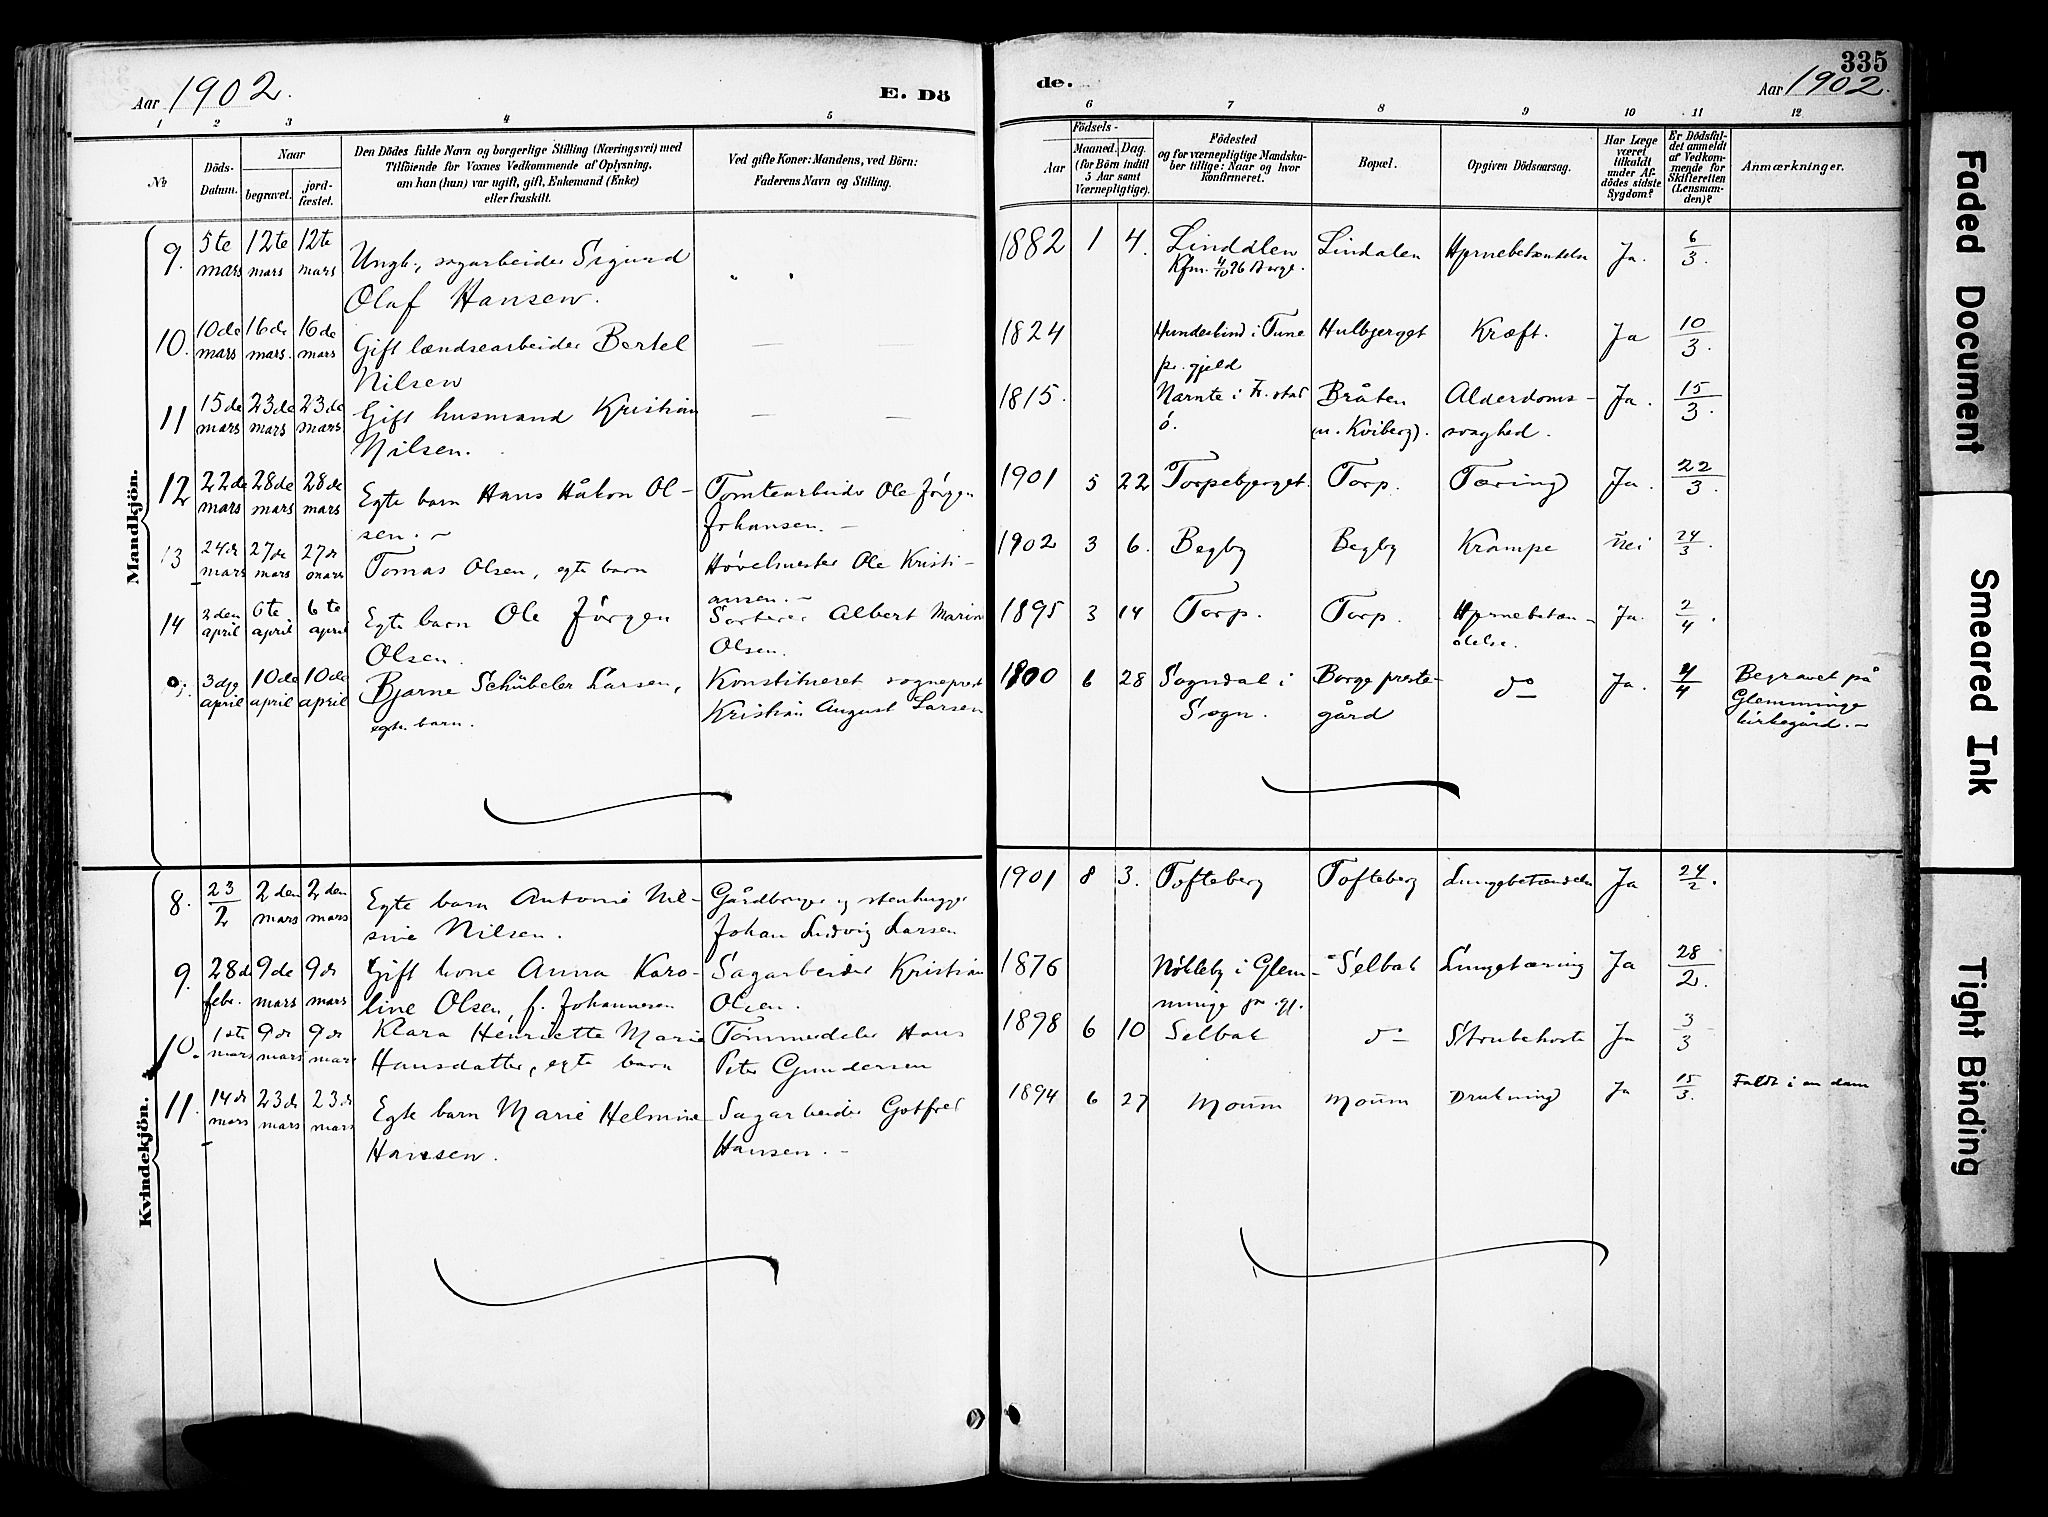 Aar 1902.
E. Dö
de.
335
Aar 1902.
1 2 3 4 5
6 7 8 9 10 11 12
№
Döds-
Datum.
Naar
begravet.
jord-
fæstet.
Den Dödes fulde Navn og borgerlige Stilling (Næringsvei) med
Tilföiende for Voxnes Vedkommende af Oplysning,
om han (hun) var ugift, gift, Enkemand (Enke)
eller fraskilt.
Ved gifte Koner: Mandens, ved Börn:
Faderens Navn og Stilling.
Födsels-
Aar
Maaned. Dag.
(for Börn indtil
5 Aar samt
Værnepligtige).
Födested
og for værnepligtige Mandska-
ber tillige: Naar og hvor
konfirmeret.
Bopæl.
Opgiven Dödsaarsag.
Har Læge
været
tilkaldt
under Af-
dödes sidste
Sygdom?
Er Dödsfal-
det anmeldt
af Vedkom-
mende for
Skifteretten
(Lensman-
den)?
Anmærkninger.
Mandkjön.
9. 5te mars 12te mars 12te mars Ungk., sagarbeider Sigurd " " 1882 1 4. Linddlen Lindalen Hjernebetændelse Ja. 6/3.
Olaf Hansen. Kfm. 4/10 96 Borge.
10. 10de mars 16de mars. 16de mars Gift lændsearbeider Bertel — — 1824 Hunderlund i Tune Hulbjerget Kræft. Ja 10/3.
Nilsen pr. gjeld
11 15de mars 23de mars 23de mars. Gift husmand Kristian — — 1815. Narnte i Fr.stad Bråten Alderdoms- Ja. 15/3.
Nilsen. ö. (u. Kviberg). svaghed.
12 22de mars 28de mars 28de mars Egte barn Hans Håkon Ol- Tomtearbeider Ole Jørgen 1901 5 22 Torpebjerget. Torp. Tæring Ja. 22/3.
sen. – Johansen. –
13 24de mars 27de mars 27de mars Tomas Olsen, egte barn Høvelmester Ole Kristi- 1902 3 6. Begby Begby Krampe nei 24/3.
ansen. –
14 2den april 6te april 6te april Egte barn Ole Jørgen Sorterer Albert Marin 1895 3 14 Torp. Torp. Hjernebetæn- Ja. 2/4.
Olsen. Olsen. delse.
3dje april 10de april 10de april Bjarne Schübeler Larsen, Konstitueret sogneprest 1900 6 28 Sogndal i Borge preste- do Ja. 4/4 Begravet på
egte barn. Kristian August Larsen Sogn. gård Glemminge
kirkegård. –
Kvindekjön.
8. 23/2 2den mars 2den mars Egte barn Antonie Nil- Gårdbruger og stenhugger 1901 8 3. Tofteberg Tofteberg Lungebetændelse Ja 24/2.
sine Nilsen. Johan Ludvig Larsen
9. 28de febr. 9de mars 9de mars Gift kone Anna Karo- Sagarbeider Kristian 1876 Nølleby i Glem- Selbak Lungetæring Ja 28/2.
line Olsen, f. Johannesen Olsen. minge pr. gj.
10. 1ste mars 9de mars 9de mars Klara Henriette Marie Tømmerdeler Hans 1898 6 10 Selbak do Strubehoste Ja 3/3
Hansdatter, egte barn Peter Gundersen
11. 14de mars 23de mars 23de mars Egte barn Marie Helmine Sagarbeider Gotfred 1894 6 27 Moum Moum Drukning Ja 15/3. Faldt i en dam
Hansen. Hansen. –
Faded Document
Smeared Ink
Tight Binding